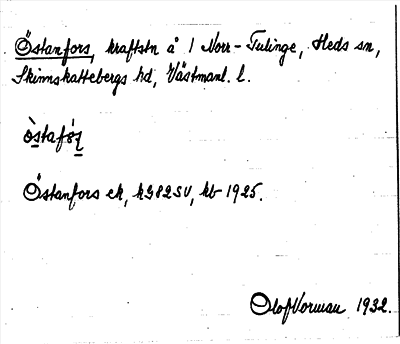 Östanfors, kraftstn å 1 Norr-Tulinge, Heds sn,
Skinnskattebergs hd, Västmanl. l.
òstafö́ꭍ
Östanfors ek, kg 82SV, kb 1925.
Olof Vorman 1932.